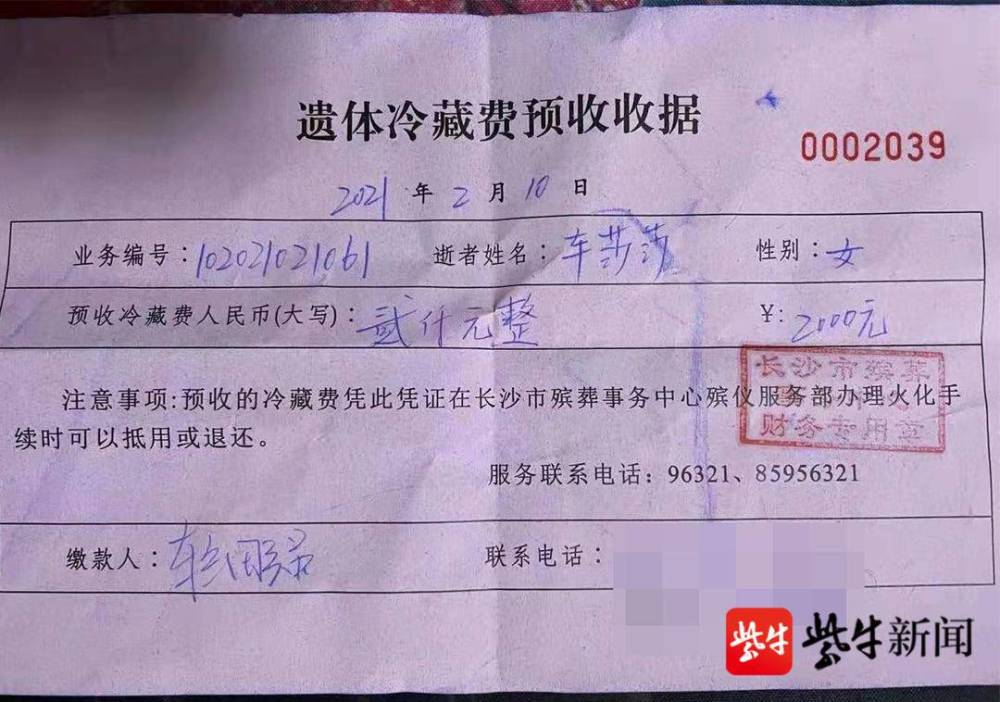 遗体冷藏费预收收据
0002039
2021 年 2 月 10 日
业务编号：102021021061 逝者姓名：车莎莎 性别：女
预收冷藏费人民币(大写)：贰仟元整 ¥：2000元
长沙市殡葬
财务专用章
注意事项:预收的冷藏费凭此凭证在长沙市殡葬事务中心殡仪服务部办理火化手
续时可以抵用或退还。
服务联系电话：96321、85956321
缴款人：车
联系电话：
紫牛 紫牛新闻